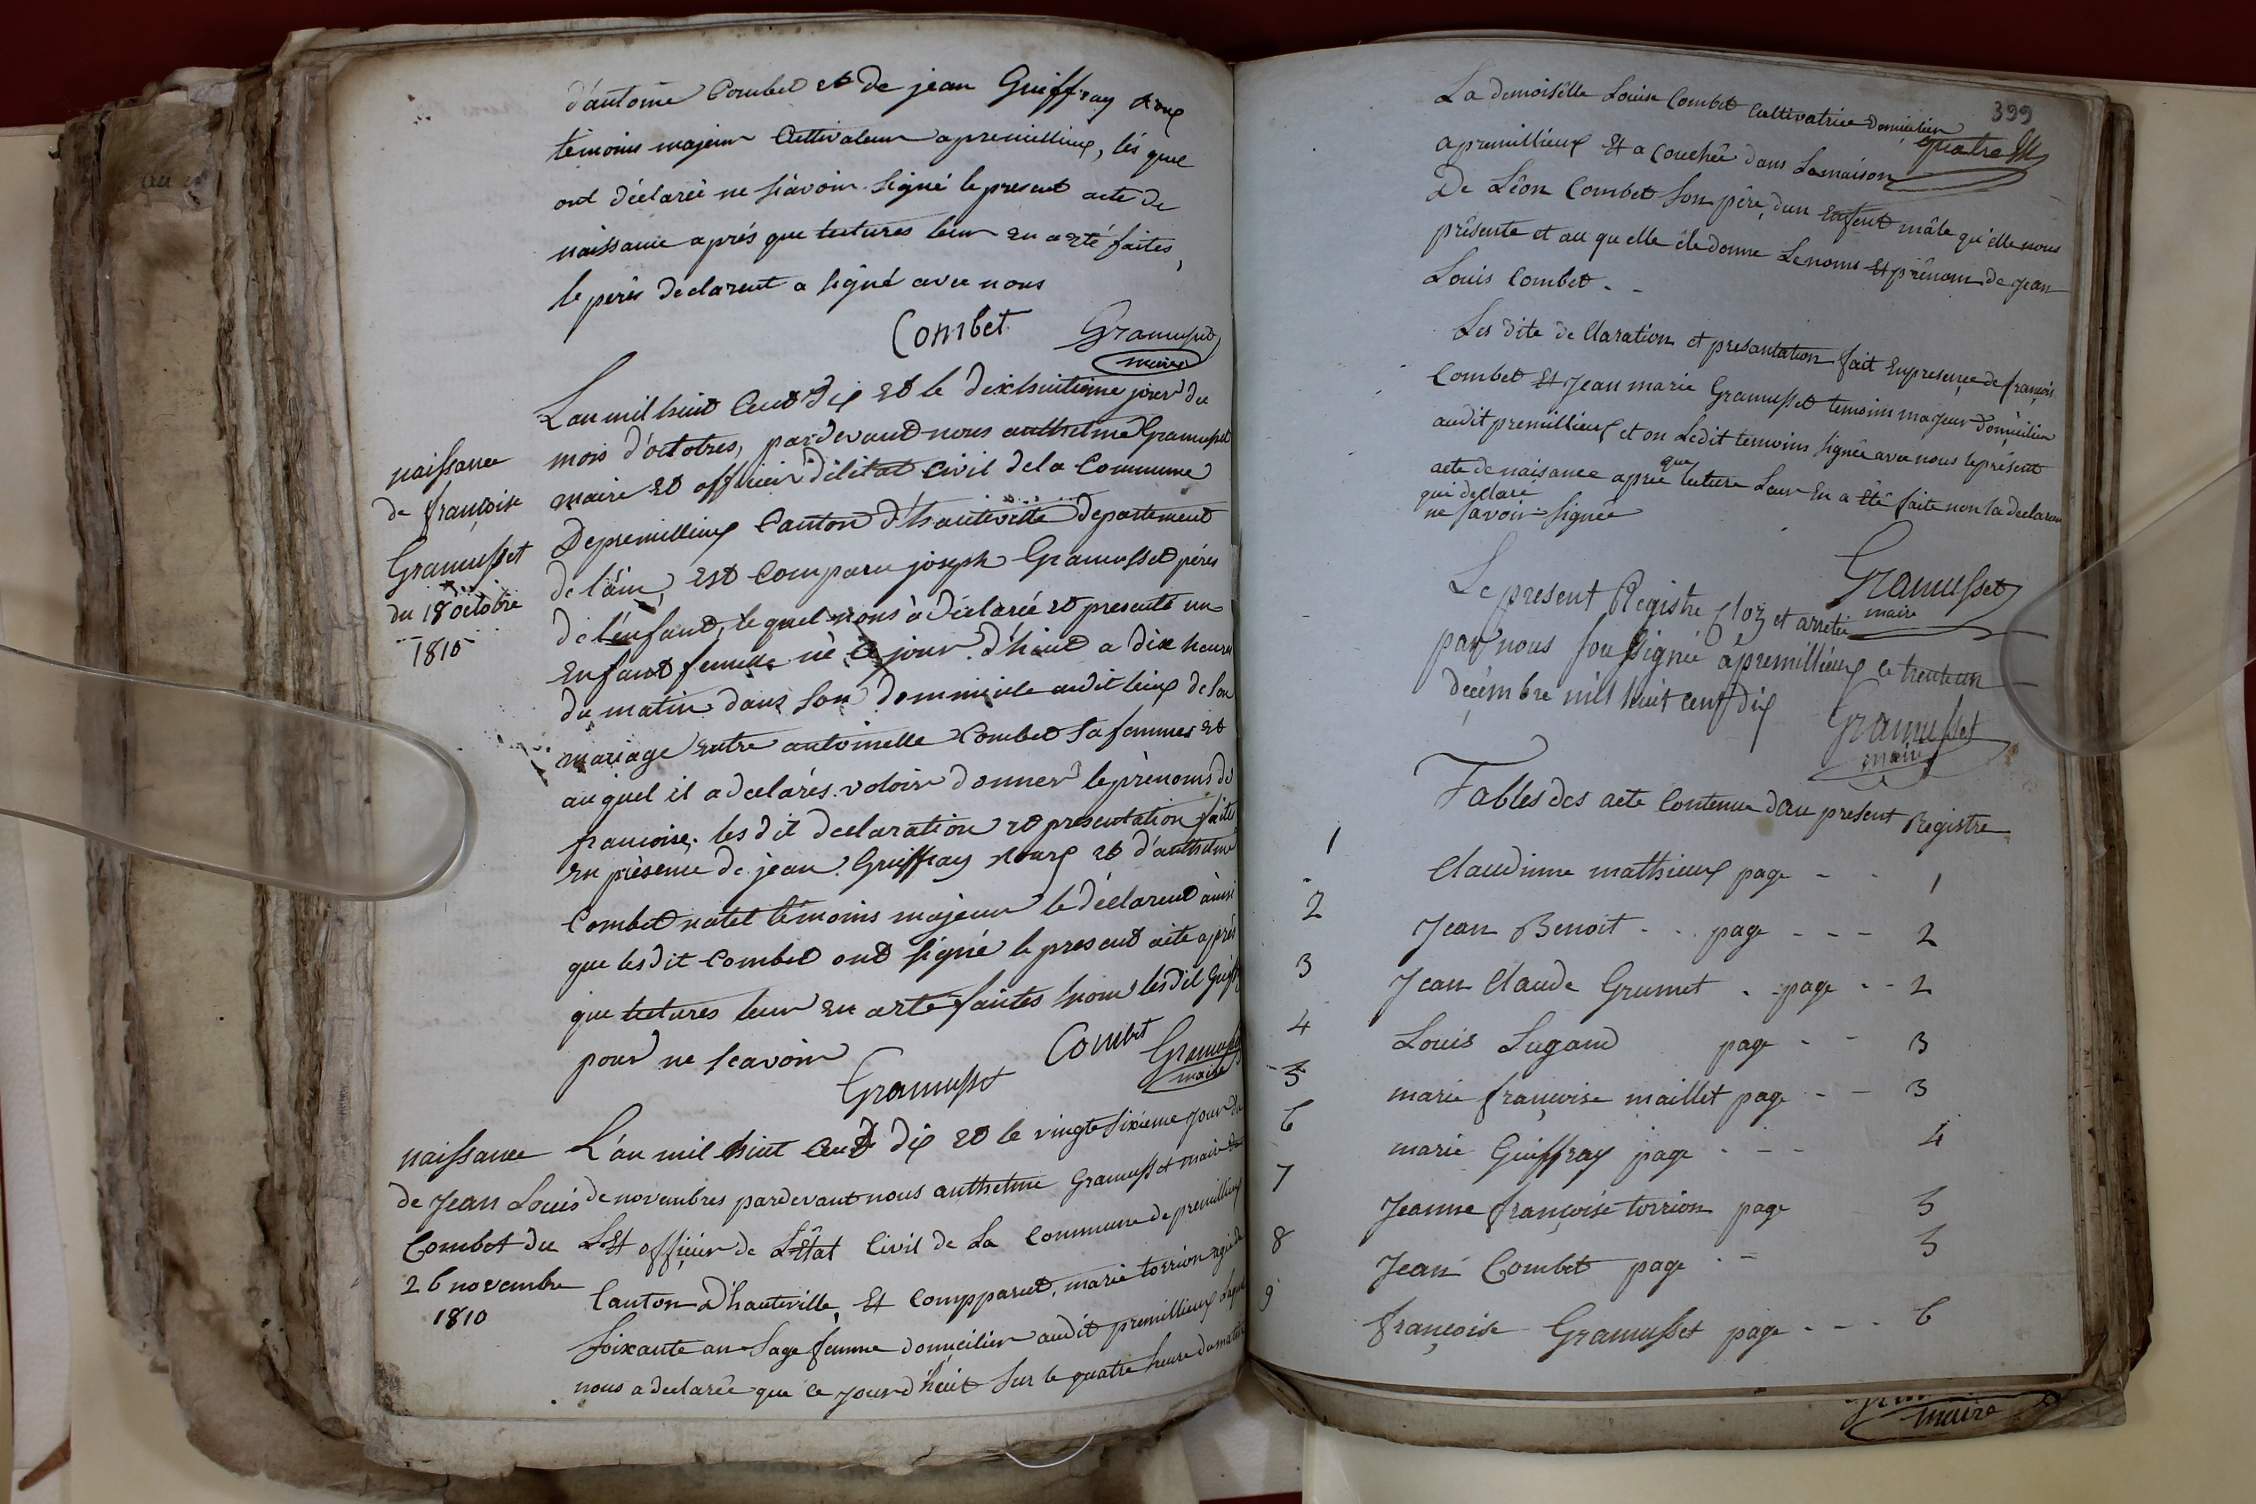 d'antoine Combet et de jean Guiffray Roux
témoins majeur Cultivateur apremillieux, lés quel
ont déclarée ne sçavoir signé le present acte de
naissance aprés que luctures leur en aété faites,
le perés declarent a signé avec nous
Combet Gramusset
maire
naissance
de françoise
Gramusset
du 18 octobre
1810
L'an mil huit Cent dix et le dixhuitieme jour du
mois d'octobres, pardevant nous anthelme Gramusset
maire et officier d'élitat civil dela Commune
Depremillieux Canton d'hauteville departement
de l'ain, Est Comparu joseph Gramusset pérés
de l'enfant, le quel nous à déclarée et presenté un
Enfant femelle né Ce jour d'huit a dix heures
du matin dans son dommicile audit lieux de son
mariage entre antoinette Combet sa femmes et
au quel il a declarés voloir donner le prénoms de
francoise. les dit declaration et presentation faites
en présence de jean Guiffray Roux et d'anthelme
Combet natel témoins majeur le déclarent ainsi
que lesdit Combet ont signé le present acte aprés
que luctures leur en aété faites non lesdit
pour ne sçavoir
Gramusset Combet Gramusset
maire
naissance
de Jean Louis
Combet du
26 novembre
1810
L'an mil huit Cent dix et le vingt sixieme jour du
de novembres pardevant nous anthelme Gramusset maire
Et officier de L'Etat Civil de La Commune de premillieux
Canton D'hauteville, Et Compparut, marie torrion agée de
soixante an Sage femme domicilier audit premillieux Laquel
nous a declarée que ce jour d'huit sur le quatre heure du matin
399
quatre
La demoiselle Louise Combet Cultivatrice domicilier
apremillieux Et a Couchée dans Lamaison
De Léon Combet son pére, dun enfent mâle qu'elle nous
présente et au quelle éle donne Le noms Et prénom de Jean
Louis Combet. - -
Les dite declaration et presantation fait Enpresence de françois
Combet Et Jean marie Gramusset temoins majeur domicilier
audit premillieux et on Ledit temoins signée avec nous le présent
acte de naisance apree que luture Leur En a Eté faite non la declaran
qui declare
ne savoir signée
Gramusset
maire
Le present Registre Cloz et arretée
par nous sousigniée apremillieux le trenteun
decembre mil huit cent dix
Gramusset
maire
Tables des acte Contenue dan present Registre
1 Claudinne mathieux page - - 1
2 Jean Benoit - . . page - - - 2
3 Jean Claude Grumet . . page - - 2
4 Louis Lugand page - - 3
5 marie françoise maillet page - - 3
6 marie Guiffray page . - - 4
7 Jeanne françoise torrion page 5
8 Jean Combet page . - 5
9 françoise Gramusset page - - - 6
maire